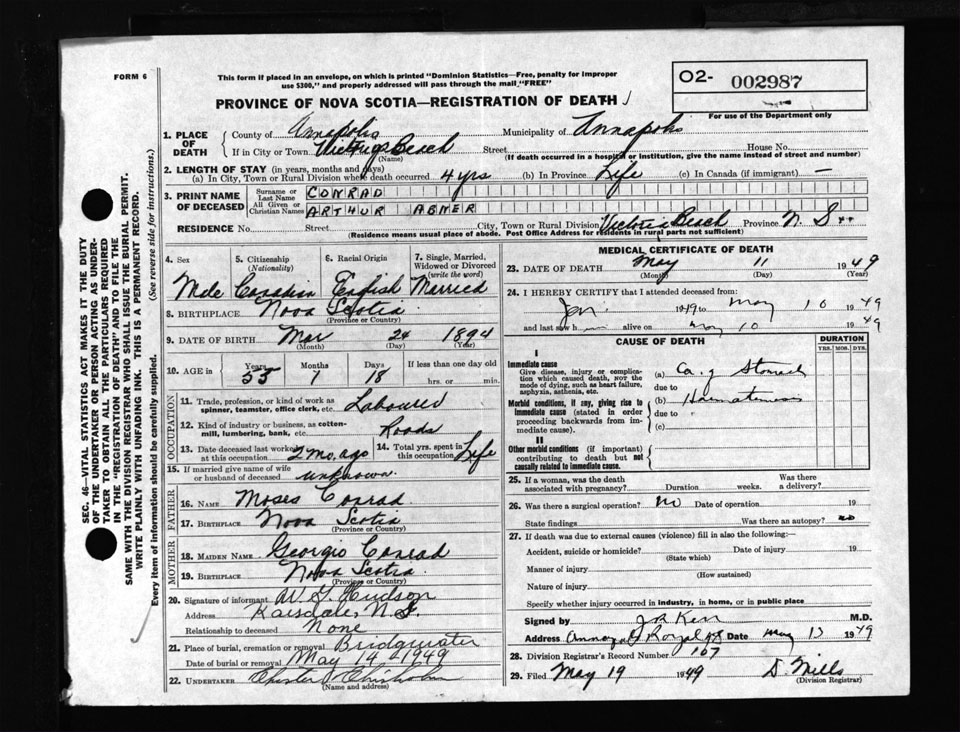 FORM 6
This form if placed in an envelope, on which is printed "Dominion Statistics—Free, penalty for improper
use $300," and properly addressed will pass through the mail "FREE"
O2- 002987
For use of the Department only
PROVINCE OF NOVA SCOTIA—REGISTRATION OF DEATH
1. PLACE OF DEATH
County of Annapolis Municipality of Annapolis
If in City or Town Victoria Beach Street House No.
(Name) (If death occurred in a hospital or institution, give the name instead of street and number)
2. LENGTH OF STAY (in years, months and days)
(a) In City, Town or Rural Division where death occurred 4 yrs (b) In Province Life (c) In Canada (if immigrant) —
3. PRINT NAME OF DECEASED
Surname or Last Name CONRAD
All Given or Christian Names ARTHUR ABNER
RESIDENCE No. Street City, Town or Rural Division Victoria Beach Province N. S.
(Residence means usual place of abode. Post Office Address for residents in rural parts not sufficient)
4. Sex 5. Citizenship (Nationality) 6. Racial Origin 7. Single, Married, Widowed or Divorced (write the word)
Male Canadian English Married
8. BIRTHPLACE Nova Scotia
(Province or Country)
9. DATE OF BIRTH Mar 24 1894
(Month) (Day) (Year)
10. AGE in Years Months Days If less than one day old
55 1 18 hrs. or min.
OCCUPATION
11. Trade, profession, or kind of work as spinner, teamster, office clerk, etc. Labourer
12. Kind of industry or business, as cotton-mill, lumbering, bank, etc. Roads
13. Date deceased last worked at this occupation 2 mo. ago 14. Total yrs. spent in this occupation Life
15. If married give name of wife or husband of deceased unknown
FATHER
16. NAME Moses Conrad
17. BIRTHPLACE Nova Scotia
(Province or Country)
MOTHER
18. MAIDEN NAME Georgio Conrad
19. BIRTHPLACE Nova Scotia
(Province or Country)
20. Signature of informant Hudson
Address Karsdale, N.S.
Relationship to deceased None
21. Place of burial, cremation or removal Bridgwater
Date of burial or removal May 14 1949
22. UNDERTAKER Chester Chisholm
(Name and address)
MEDICAL CERTIFICATE OF DEATH
23. DATE OF DEATH May 11 1949
(Month) (Day) (Year)
24. I HEREBY CERTIFY that I attended deceased from:
Jan 1949 to May 10 1949
and last saw him alive on May 10 1949
CAUSE OF DEATH DURATION
YRS. MOS. DYS.
I
Immediate cause
Give disease, injury or complication which caused death, NOT the mode of dying, such as heart failure, asphyxia, asthenia, etc.
(a) Ca. of Stomach
due to
Morbid conditions, if any, giving rise to immediate cause (stated in order proceeding backwards from immediate cause).
(b) Haematemesis
due to
(c)
II
Other morbid conditions (if important) contributing to death but not causally related to immediate cause.
25. If a woman, was the death associated with pregnancy? Duration weeks. Was there a delivery?
26. Was there a surgical operation? no Date of operation 19
State findings Was there an autopsy? no
27. If death was due to external causes (violence) fill in also the following:—
Accident, suicide or homicide? Date of injury 19
(State which)
Manner of injury
(How sustained)
Nature of injury
Specify whether injury occurred in industry, in home, or in public place
Signed by Kerr M.D.
Address Annapolis Royal NS Date May 13 1949
28. Division Registrar's Record Number 167
29. Filed May 19 1949 D. Mills
(Division Registrar)
SEC. 46—VITAL STATISTICS ACT MAKES IT THE DUTY
OF THE UNDERTAKER OR PERSON ACTING AS UNDER-
TAKER TO OBTAIN ALL THE PARTICULARS REQUIRED
IN THE "REGISTRATION OF DEATH" AND TO FILE THE
SAME WITH THE DIVISION REGISTRAR WHO SHALL ISSUE THE BURIAL PERMIT.
WRITE PLAINLY WITH UNFADING INK. THIS IS A PERMANENT RECORD.
Every item of information should be carefully supplied. (See reverse side for instructions.)